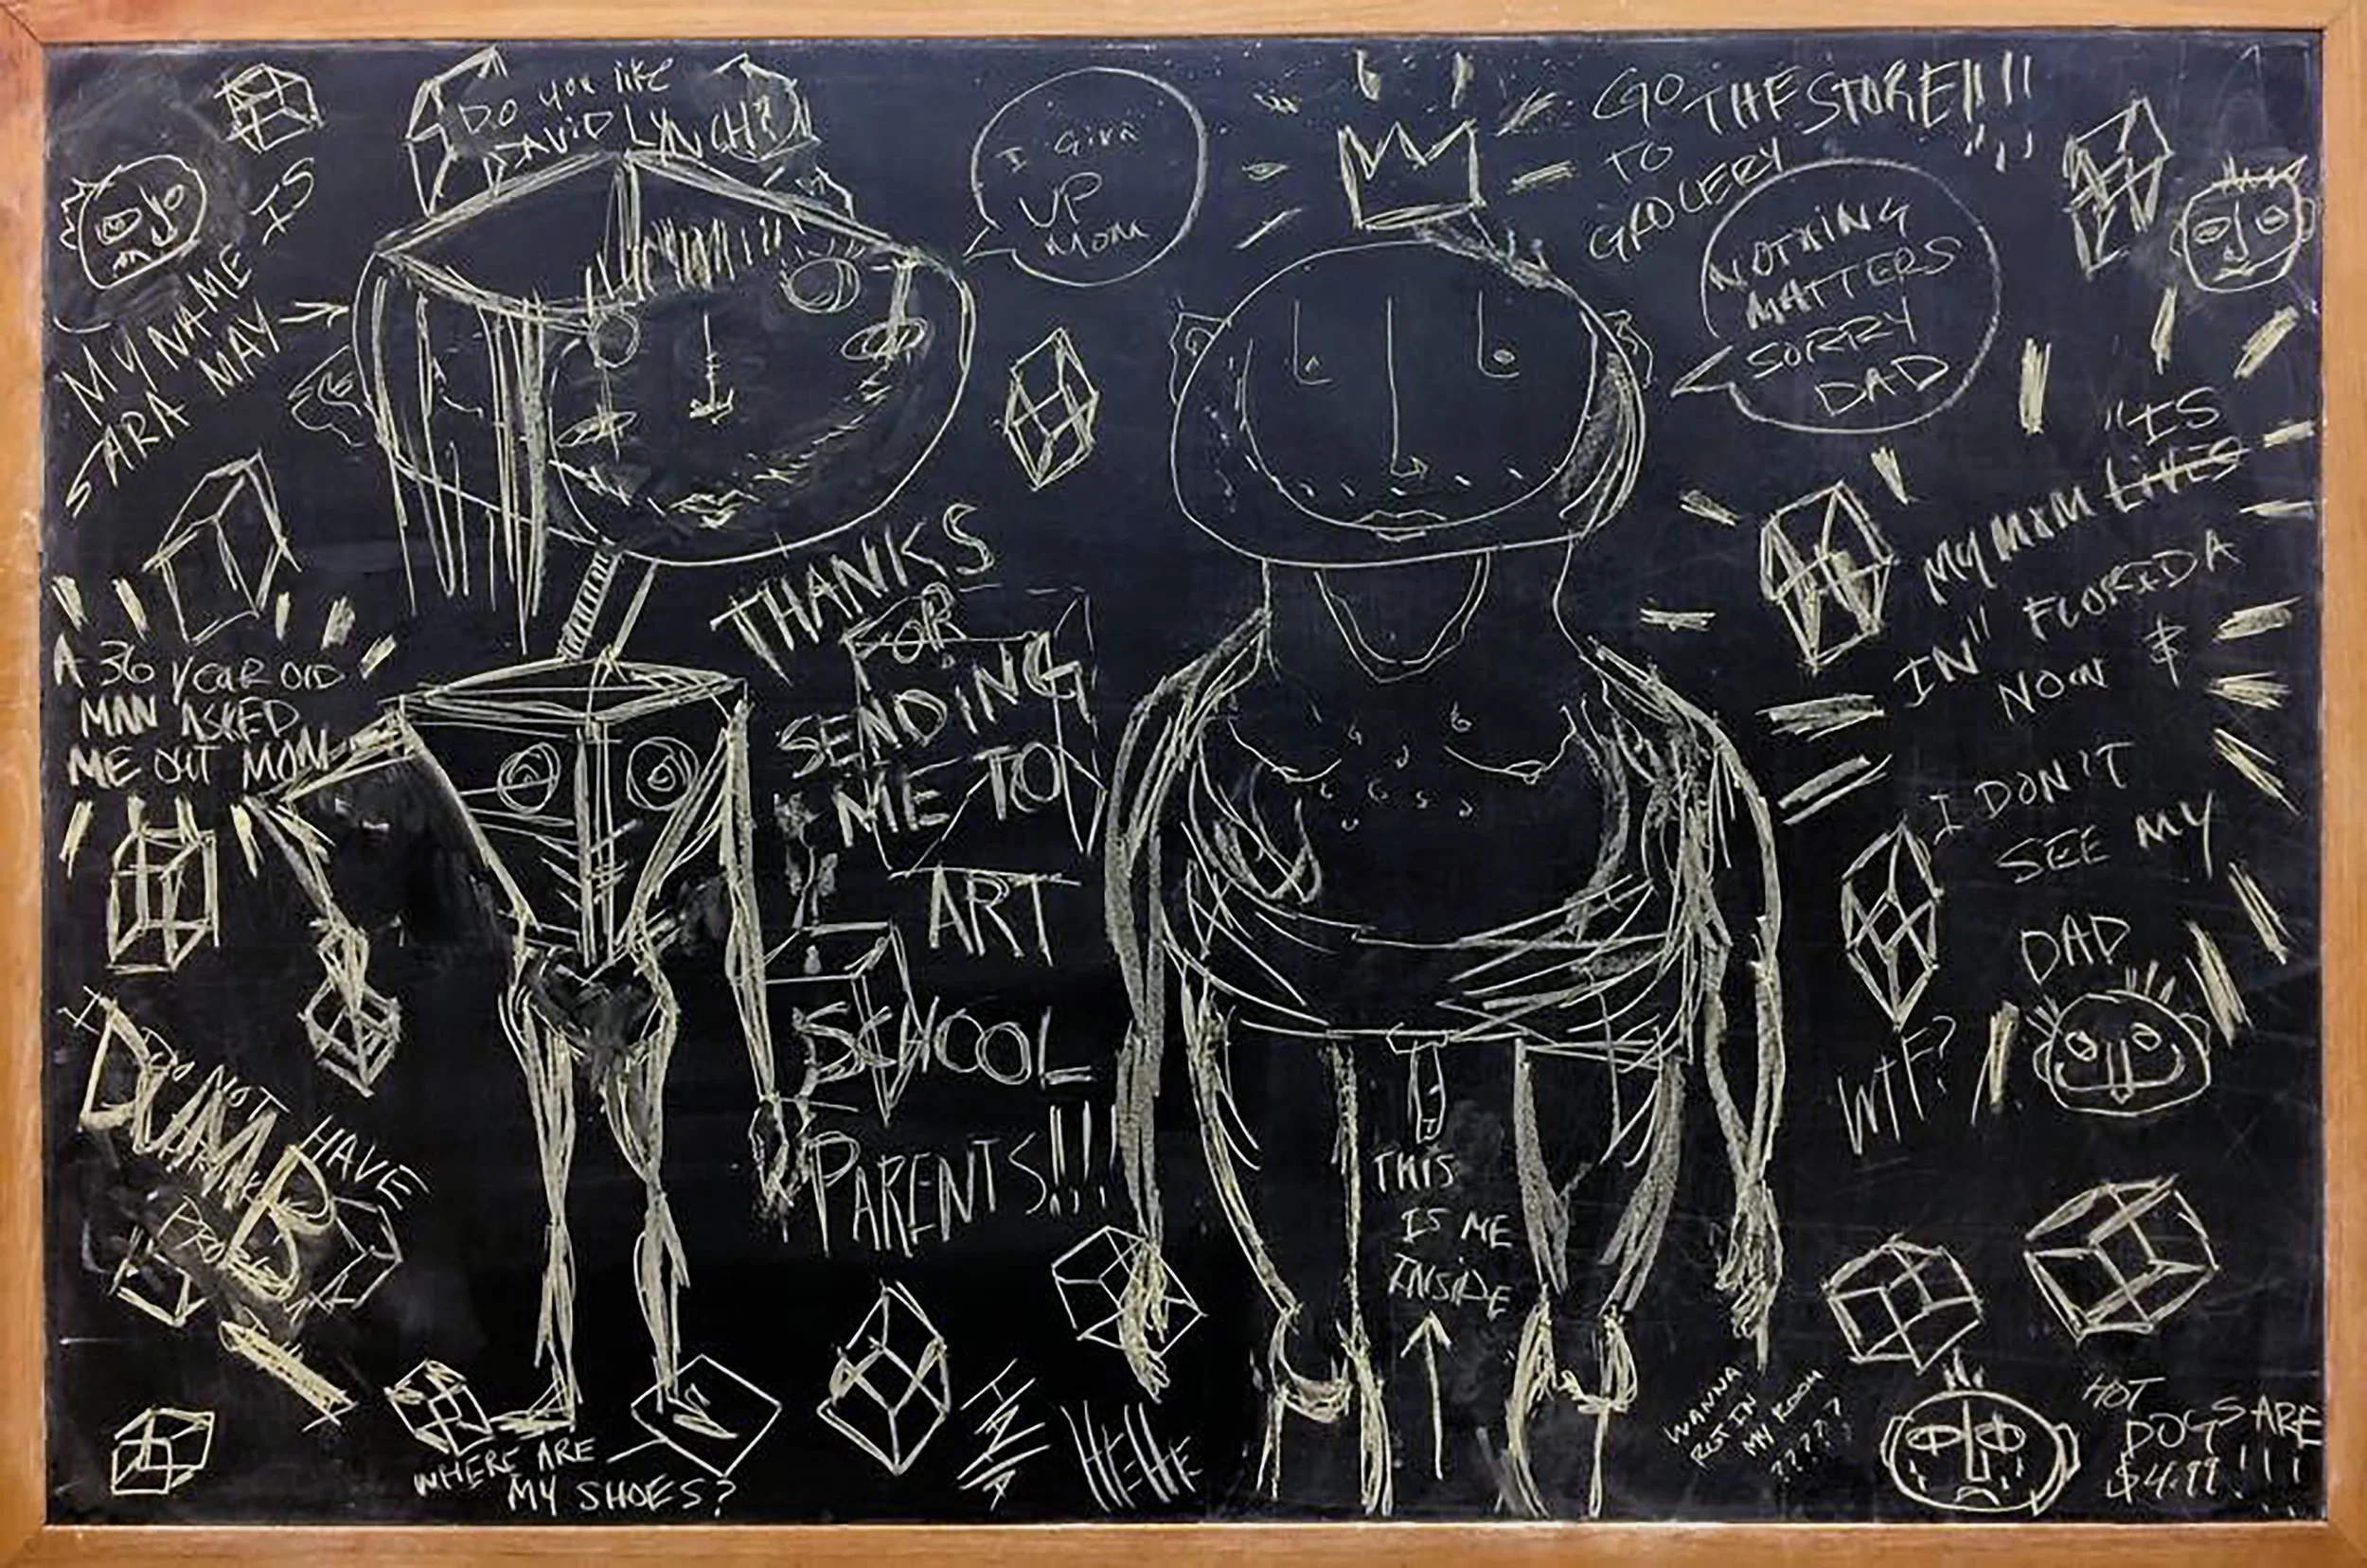 Do you like
DAVID LYNCH?
MY NAME IS
SARA MAY
I GIVE
UP
MOM
GO
TO THE STORE!!!!
GROCERY
NOTHING
MATTERS
SORRY
DAD
"IS
MY MOM LIVES
IN" FLORIDA
NOW &
I DON'T
SEE MY
DAD
WTF?
A 36 YEAR OLD
MAN ASKED
ME OUT MOM
THANKS
FOR
SENDING
ME TO
ART
SCHOOL
PARENTS!!!
I DO NOT HAVE
DUMB
THIS
IS ME
INSIDE
WHERE ARE
MY SHOES?
HEHE
WANNA
ROT IN
MY ROOM
?????
HOT
DOGS ARE
$4.99!!!